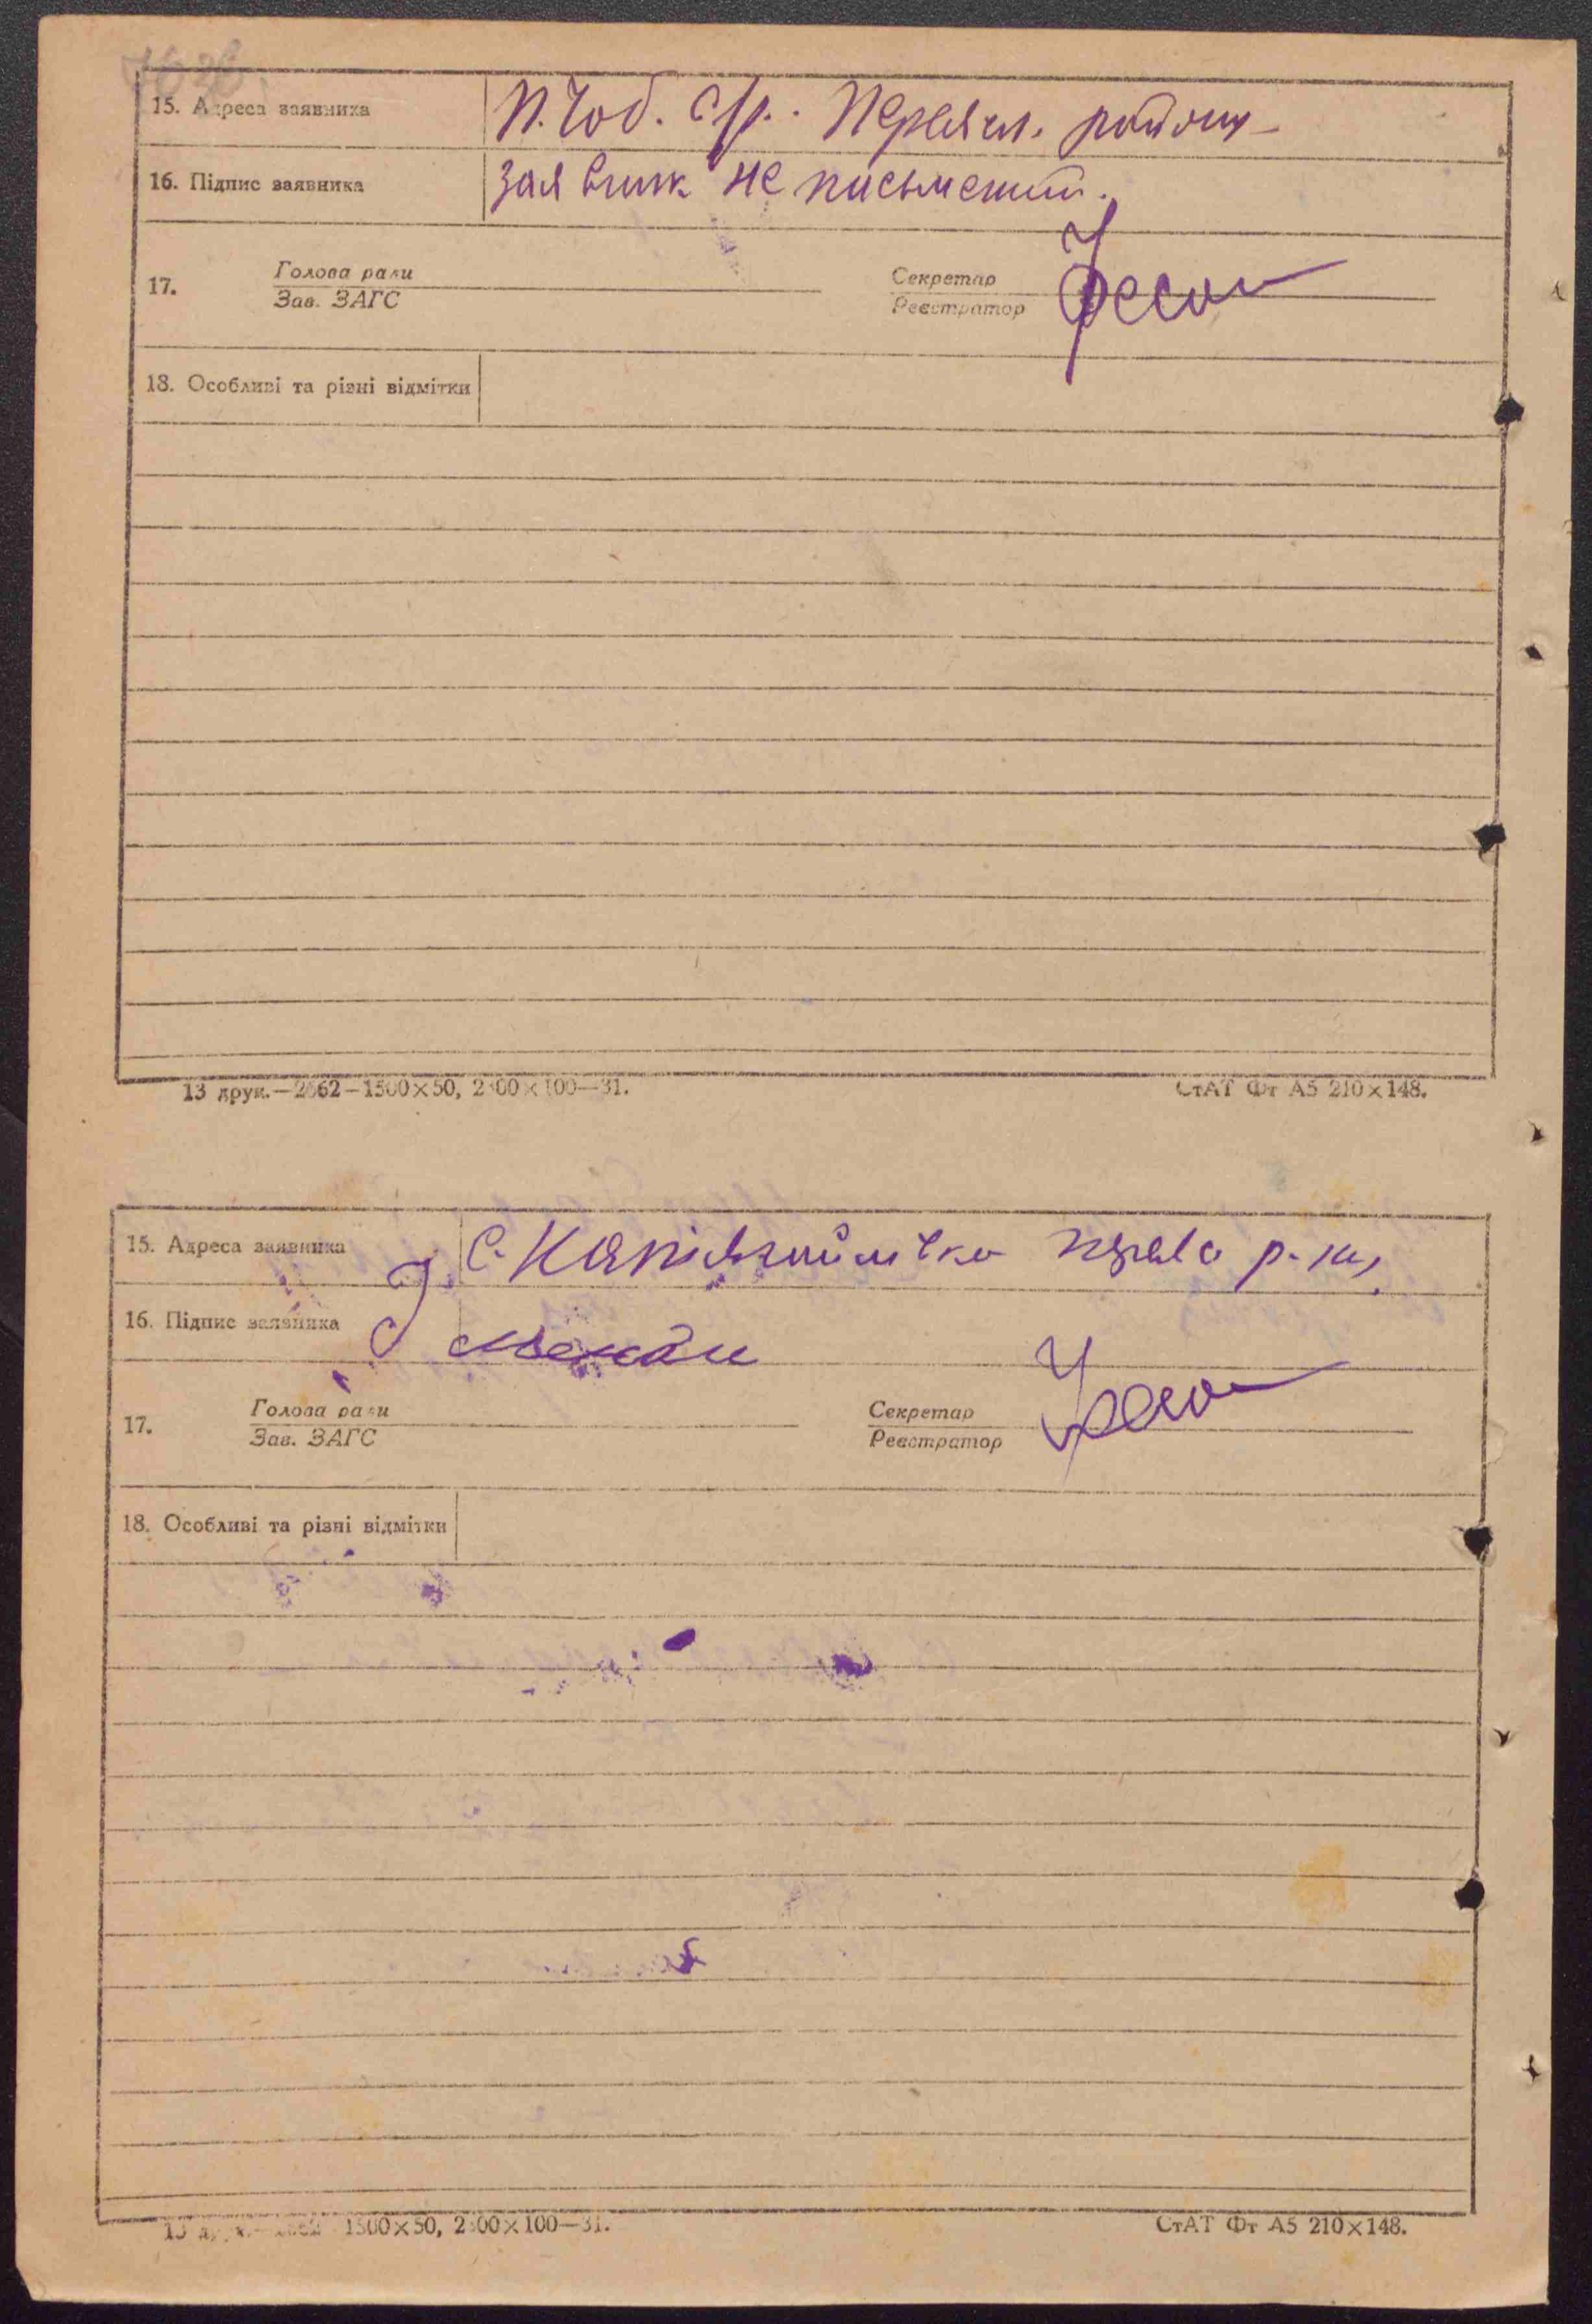 15. Адреса заявника П. Чоб. с/р. Переясл. району
16. Підпис заявника заявник не письмений.
17. Голова ради Секретар
Зав. ЗАГС Реєстратор
18. Особливі та різні відмітки
13 друк.—2662—1500×50, 2300×100—31. СтАТ Фт А5 210×148.
15. Адреса заявника с. р-ну,
16. Підпис заявника
17. Голова ради Секретар
Зав. ЗАГС Реєстратор
18. Особливі та різні відмітки
13 друк.—2662—1500×50, 2300×100—31. СтАТ Фт А5 210×148.